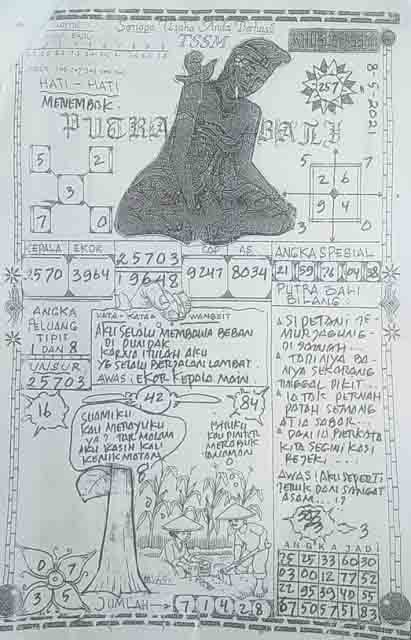 Semoga Usaha Anda Berhasil
TSSM
HATI - HATI
MENEMBAK.
PUTRA BALI
257
8-5-2021
5 2
3
7 0
5 7
2 6
9 4
3 0
KEPALA EKOR
2570 3964
25703
19648
COP AS
9247 8034
ANGKA SPESIAL
21 59 76 04 58
PUTRA BALI
BILANG:
ANGKA
PELUANG
TIPIS
1 DAN 8
UNSUR
25703
KATA - KATA WANGSIT
AKU SELALU MEMBAWA BEBAN
DI PUNDAK
KARNA ITULAH AKU
YG SELALU BERJALAN LAMBAT.
AWAS: EKOR KEPALA MAIN.
SI PETANI TE-
MUR JAGUNG-
DI SAWAH
TAPI NYA BA-
NYA SEKARANG
TINGGAL DIKIT...
PATAH SEMANG
AT IA SABAR...
DAN IA BERKATA
KITA SEGINI KASI
REJEKI....
AWAS! AKU SEPERTI
JERUK DAN SANGAT
ASAM...!?
16
42
84
SUAMI KU
KAU MERAYUKU
YA? TAR MALAM
AKU KASIH KAU
KENIKMATAN
KAU PINTER
MERABUK
TANAMAN
3
0 7
3 5
JUMLAH → 7 1 4 2 8
ANGKA JADI
25 25 33 60 30
03 00 12 77 52
22 95 39 40 55
07 50 57 51 83